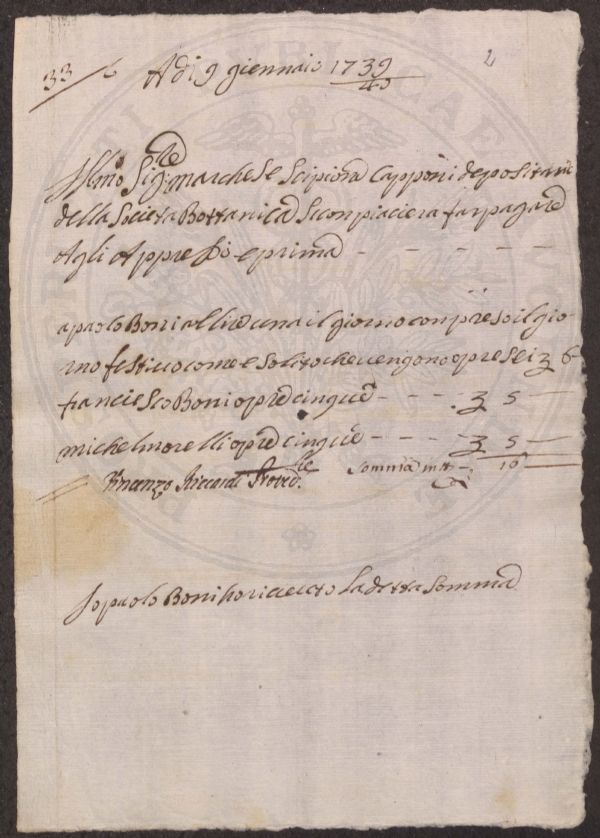 33 6 Adi 9 giennaio 1739/40 2
Illmo Sigre marchese Scipione Capponi depositario
della Societa Bottanica Sconpiaciera far pagare
Agli Appresso e prima - - - - - -
a paolo Boni allire una il giorno conpreso il gio-
rno festiuo come e Solito che uengono opre sei 3 6
franciesco Boni opre cinque - - - - 3 5 -
michel morelli opre cinque - - - - 3 5 -
Vincenzo Riccardi Provre. Somma in tt 16
Io paolo Boni ho riceuto la detta Somma